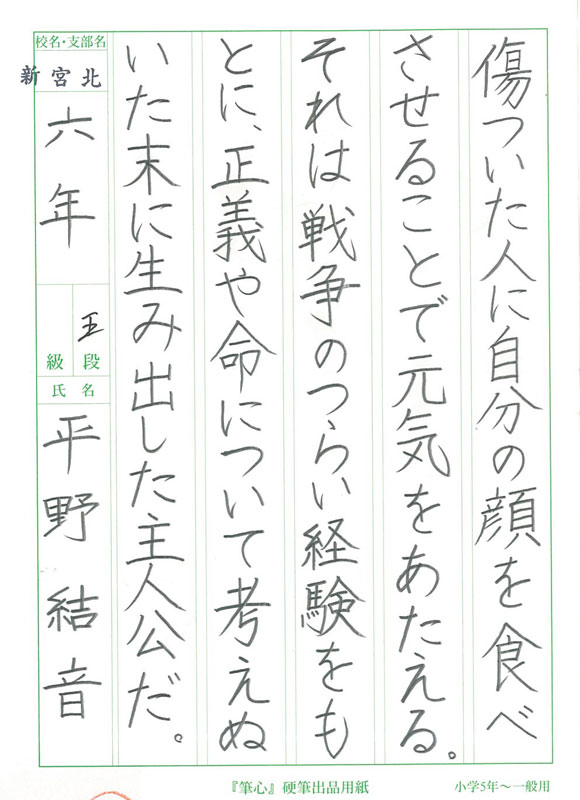 傷ついた人に自分の顔を食べ
させることで元気をあたえる。
それは戦争のつらい経験をも
とに、正義や命について考えぬ
いた末に生み出した主人公だ。
校名・支部名
新宮北
六年
五
級 段
氏名
平野結音
『筆心』硬筆出品用紙
小学5年〜一般用